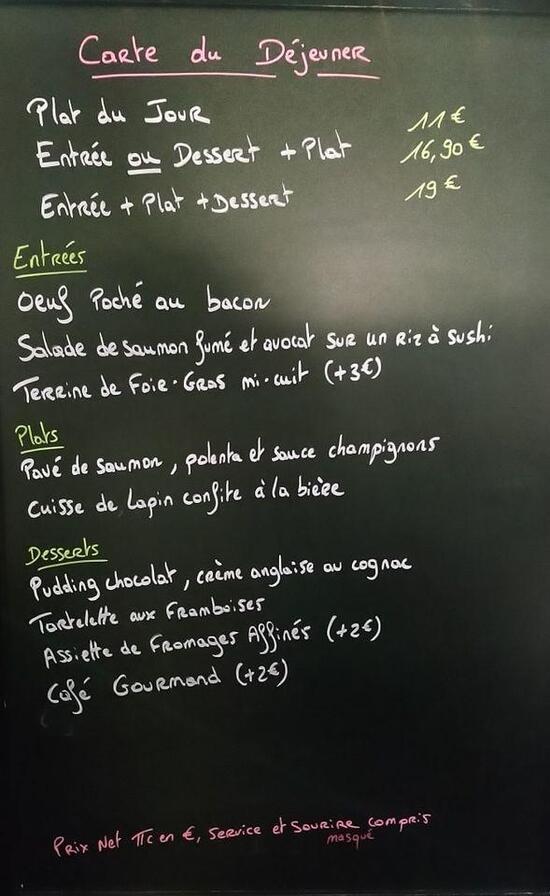 Carte du Déjeuner
Plat du Jour 11€
Entrée ou Dessert + Plat 16,90€
Entrée + Plat + Dessert 19€
Entrées
Oeuf Poché au bacon
Salade de saumon fumé et avocat sur un Riz à Sushi
Terrine de Foie-Gras mi-cuit (+3€)
Plats
Pavé de saumon, polenta et sauce champignons
Cuisse de Lapin confite à la bière
Desserts
Pudding chocolat, crème anglaise au cognac
Tartelette aux Framboises
Assiette de Fromages Affinés (+2€)
Café Gourmand (+2€)
Prix Net TTC en €, Service et Sourire compris
masqué